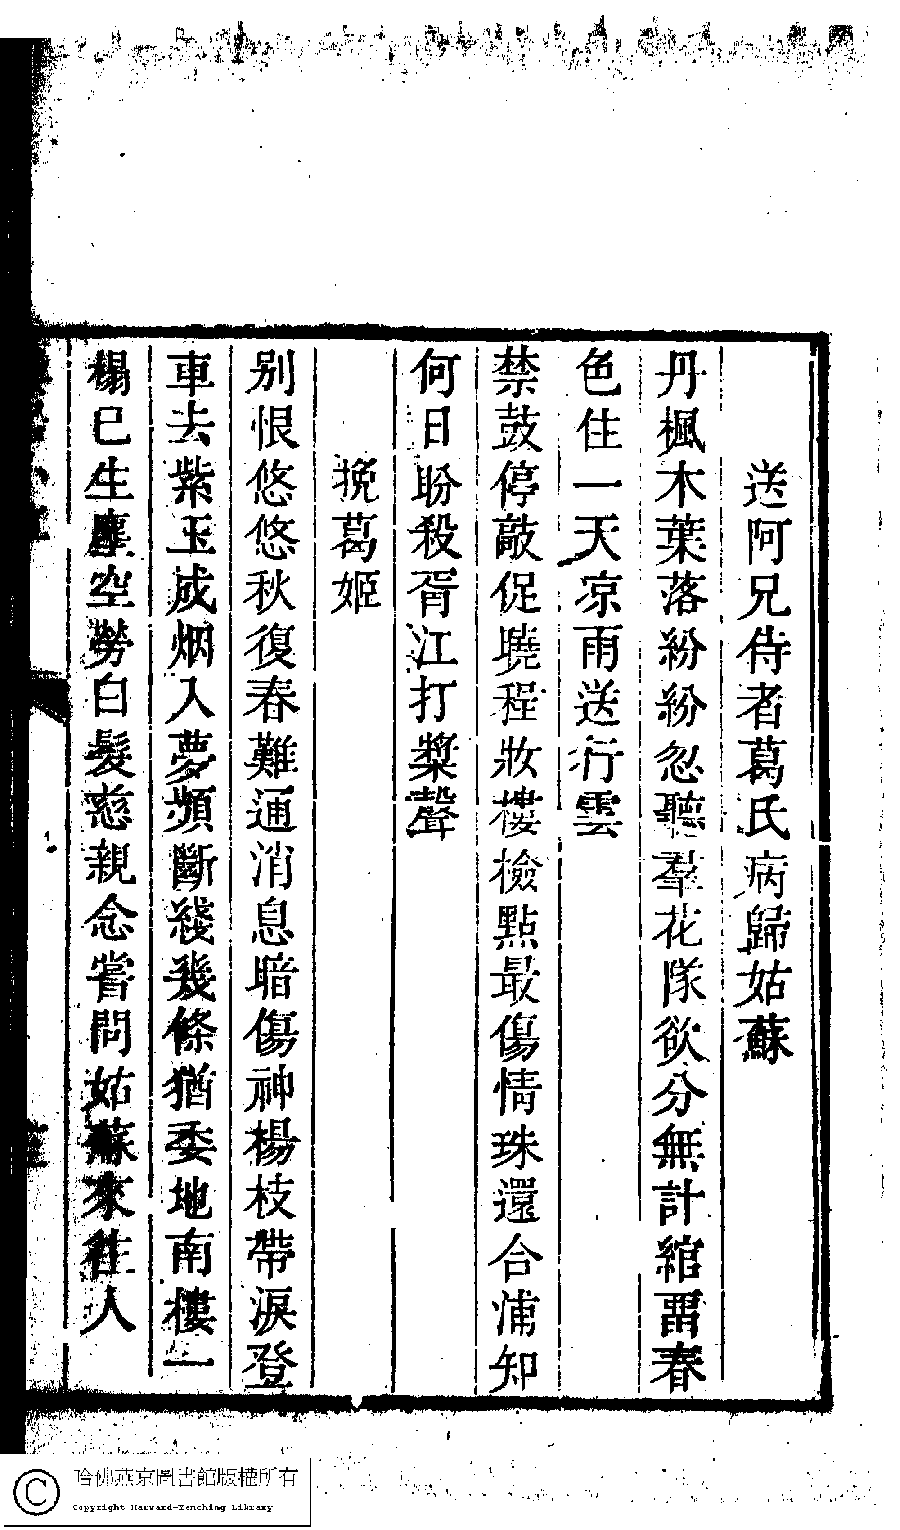 送阿兄侍者葛氏病歸姑蘇
丹楓木葉落紛紛忽聽羣花隊欲分無計綰畱春
色住一天凉雨送行雲
禁鼓停敲促曉程妝樓檢點最傷情珠還合浦知
何日盼殺胥江打槳聲
挽葛姬
别恨悠悠秋復春難通消息暗傷神楊枝帶淚登
車去紫玉成烟入夢頻斷綫幾條猶委地南樓一
榻巳生塵空勞白髮慈親念嘗問姑蘇來往人
哈佛燕京圖書館版權所有
Copyright Harvard-Yenching Library